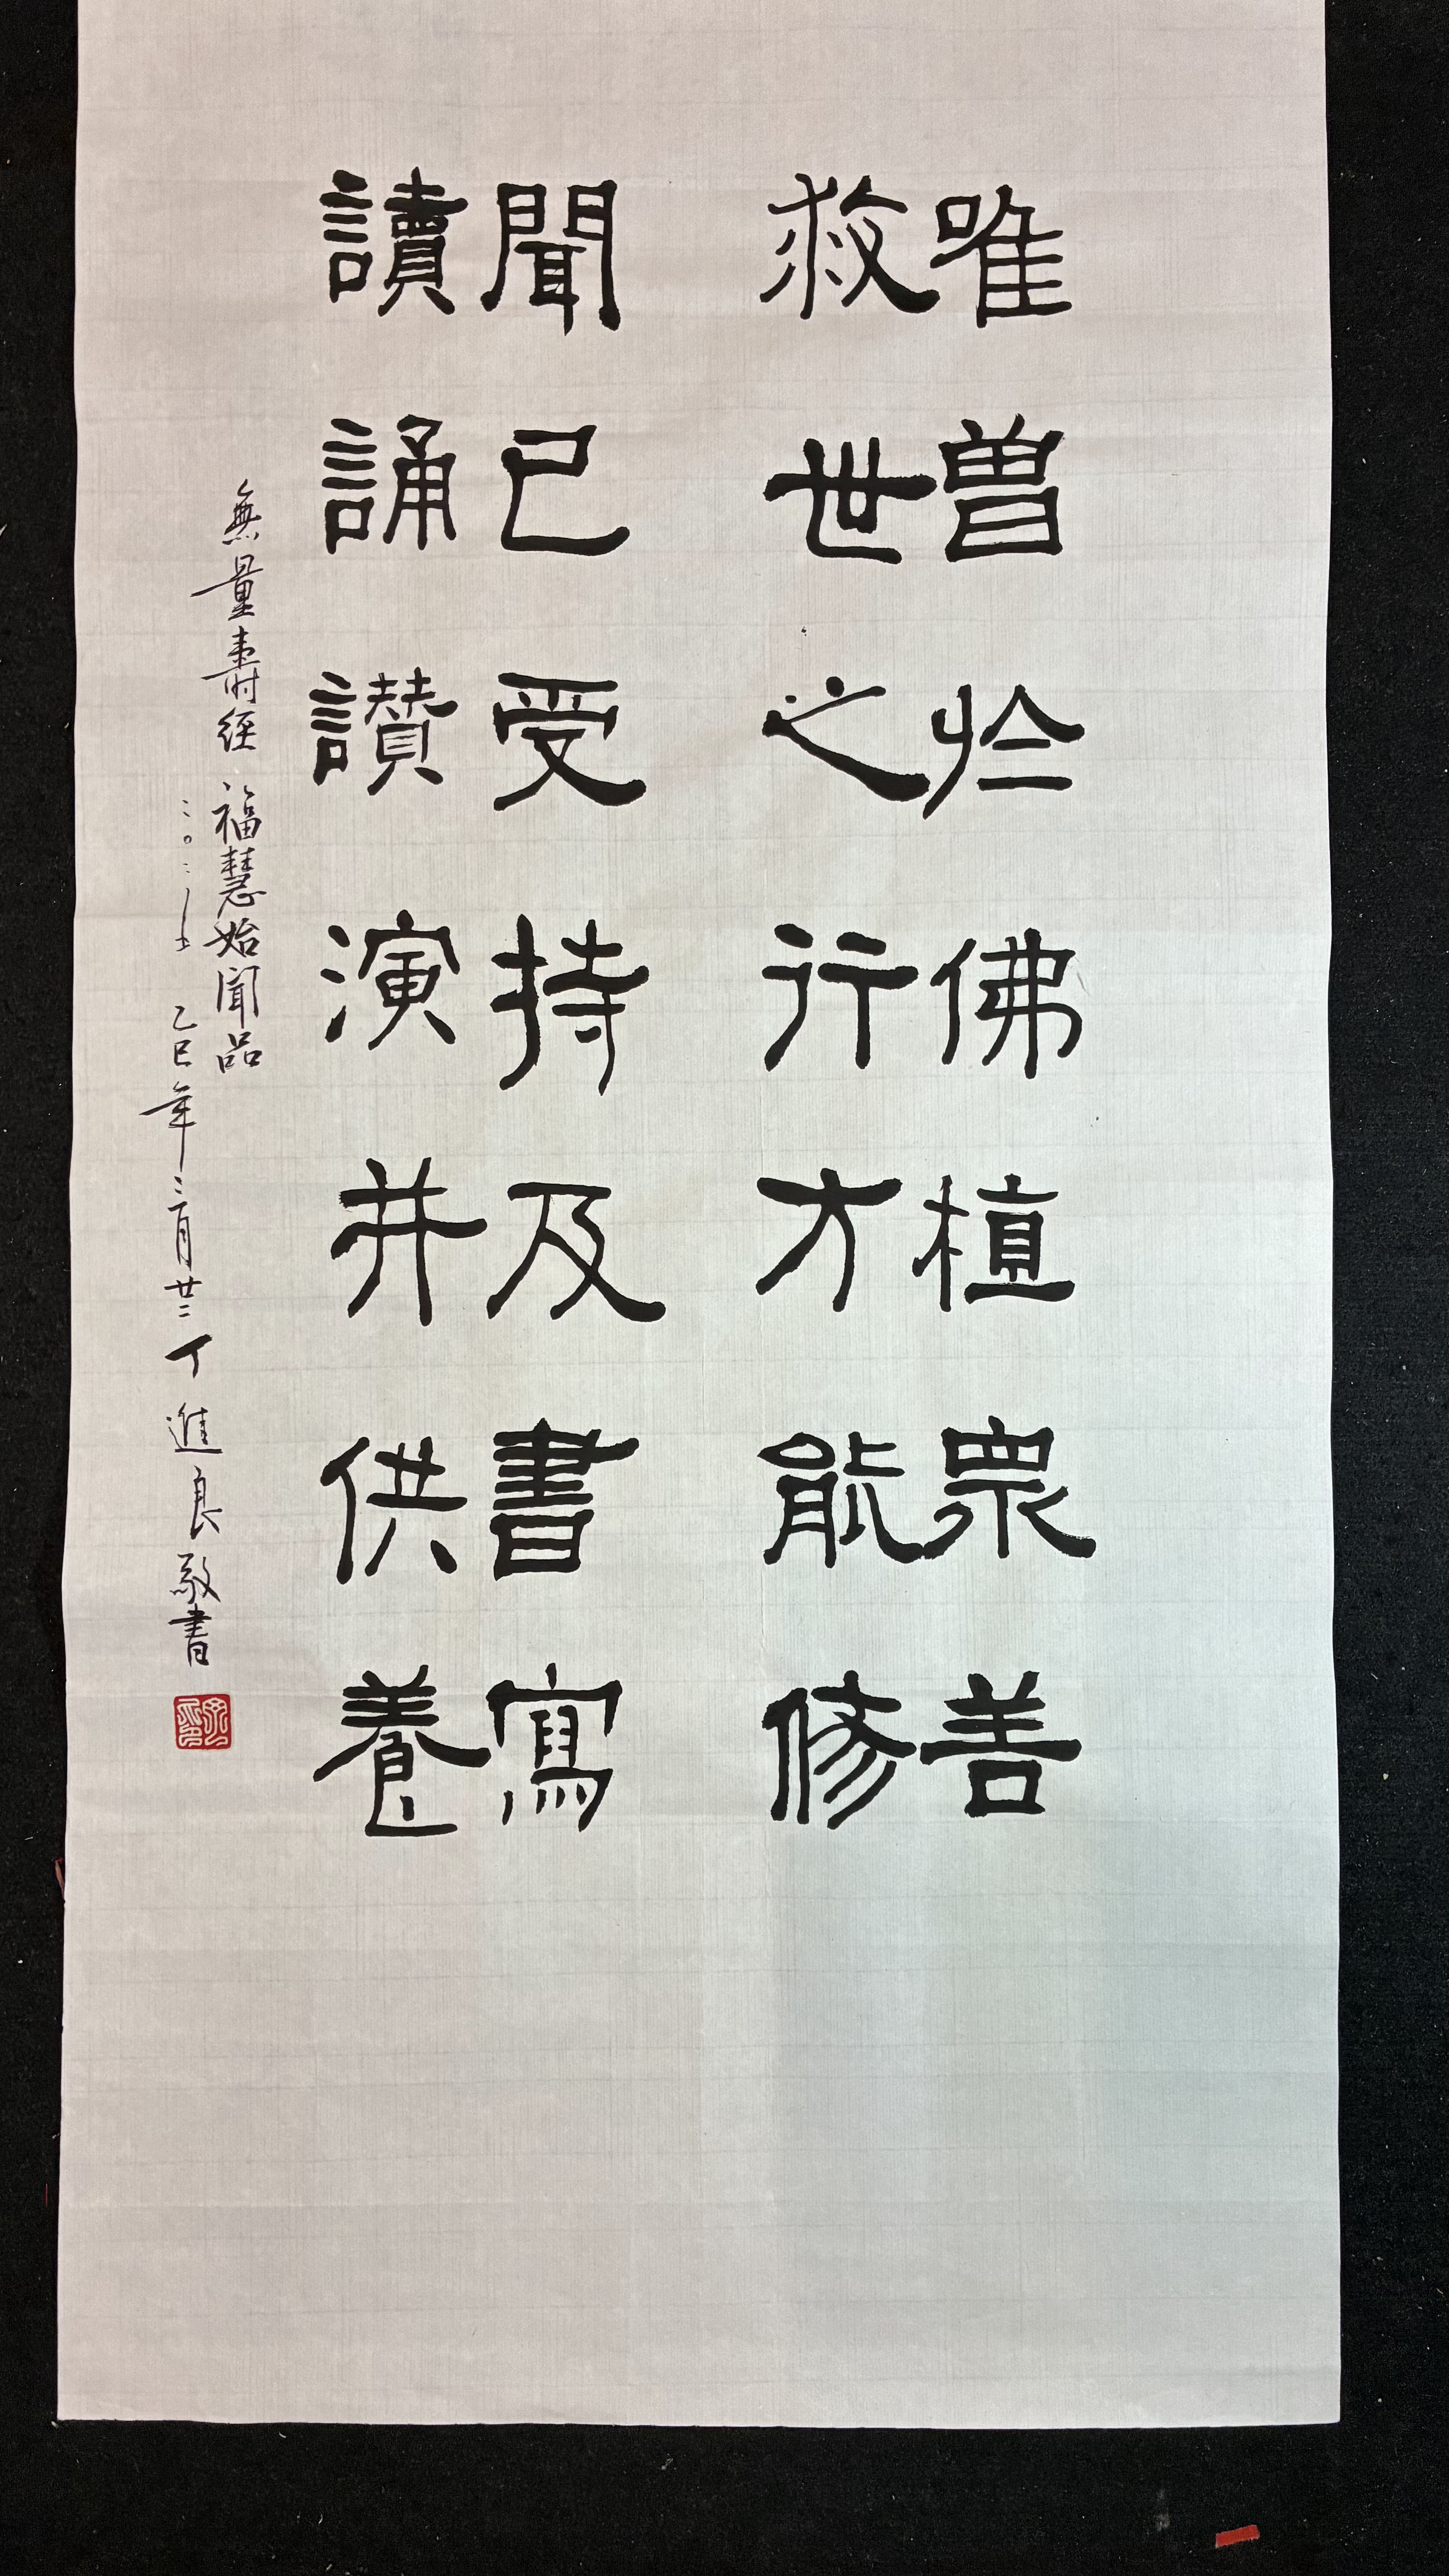 唯曽於佛植眾善
救世之行方能修
聞已受持及書寫
讀誦讃演并供養
無量壽經 福慧始聞品
二〇二五 乙巳年二月廿二 丁進良敬書